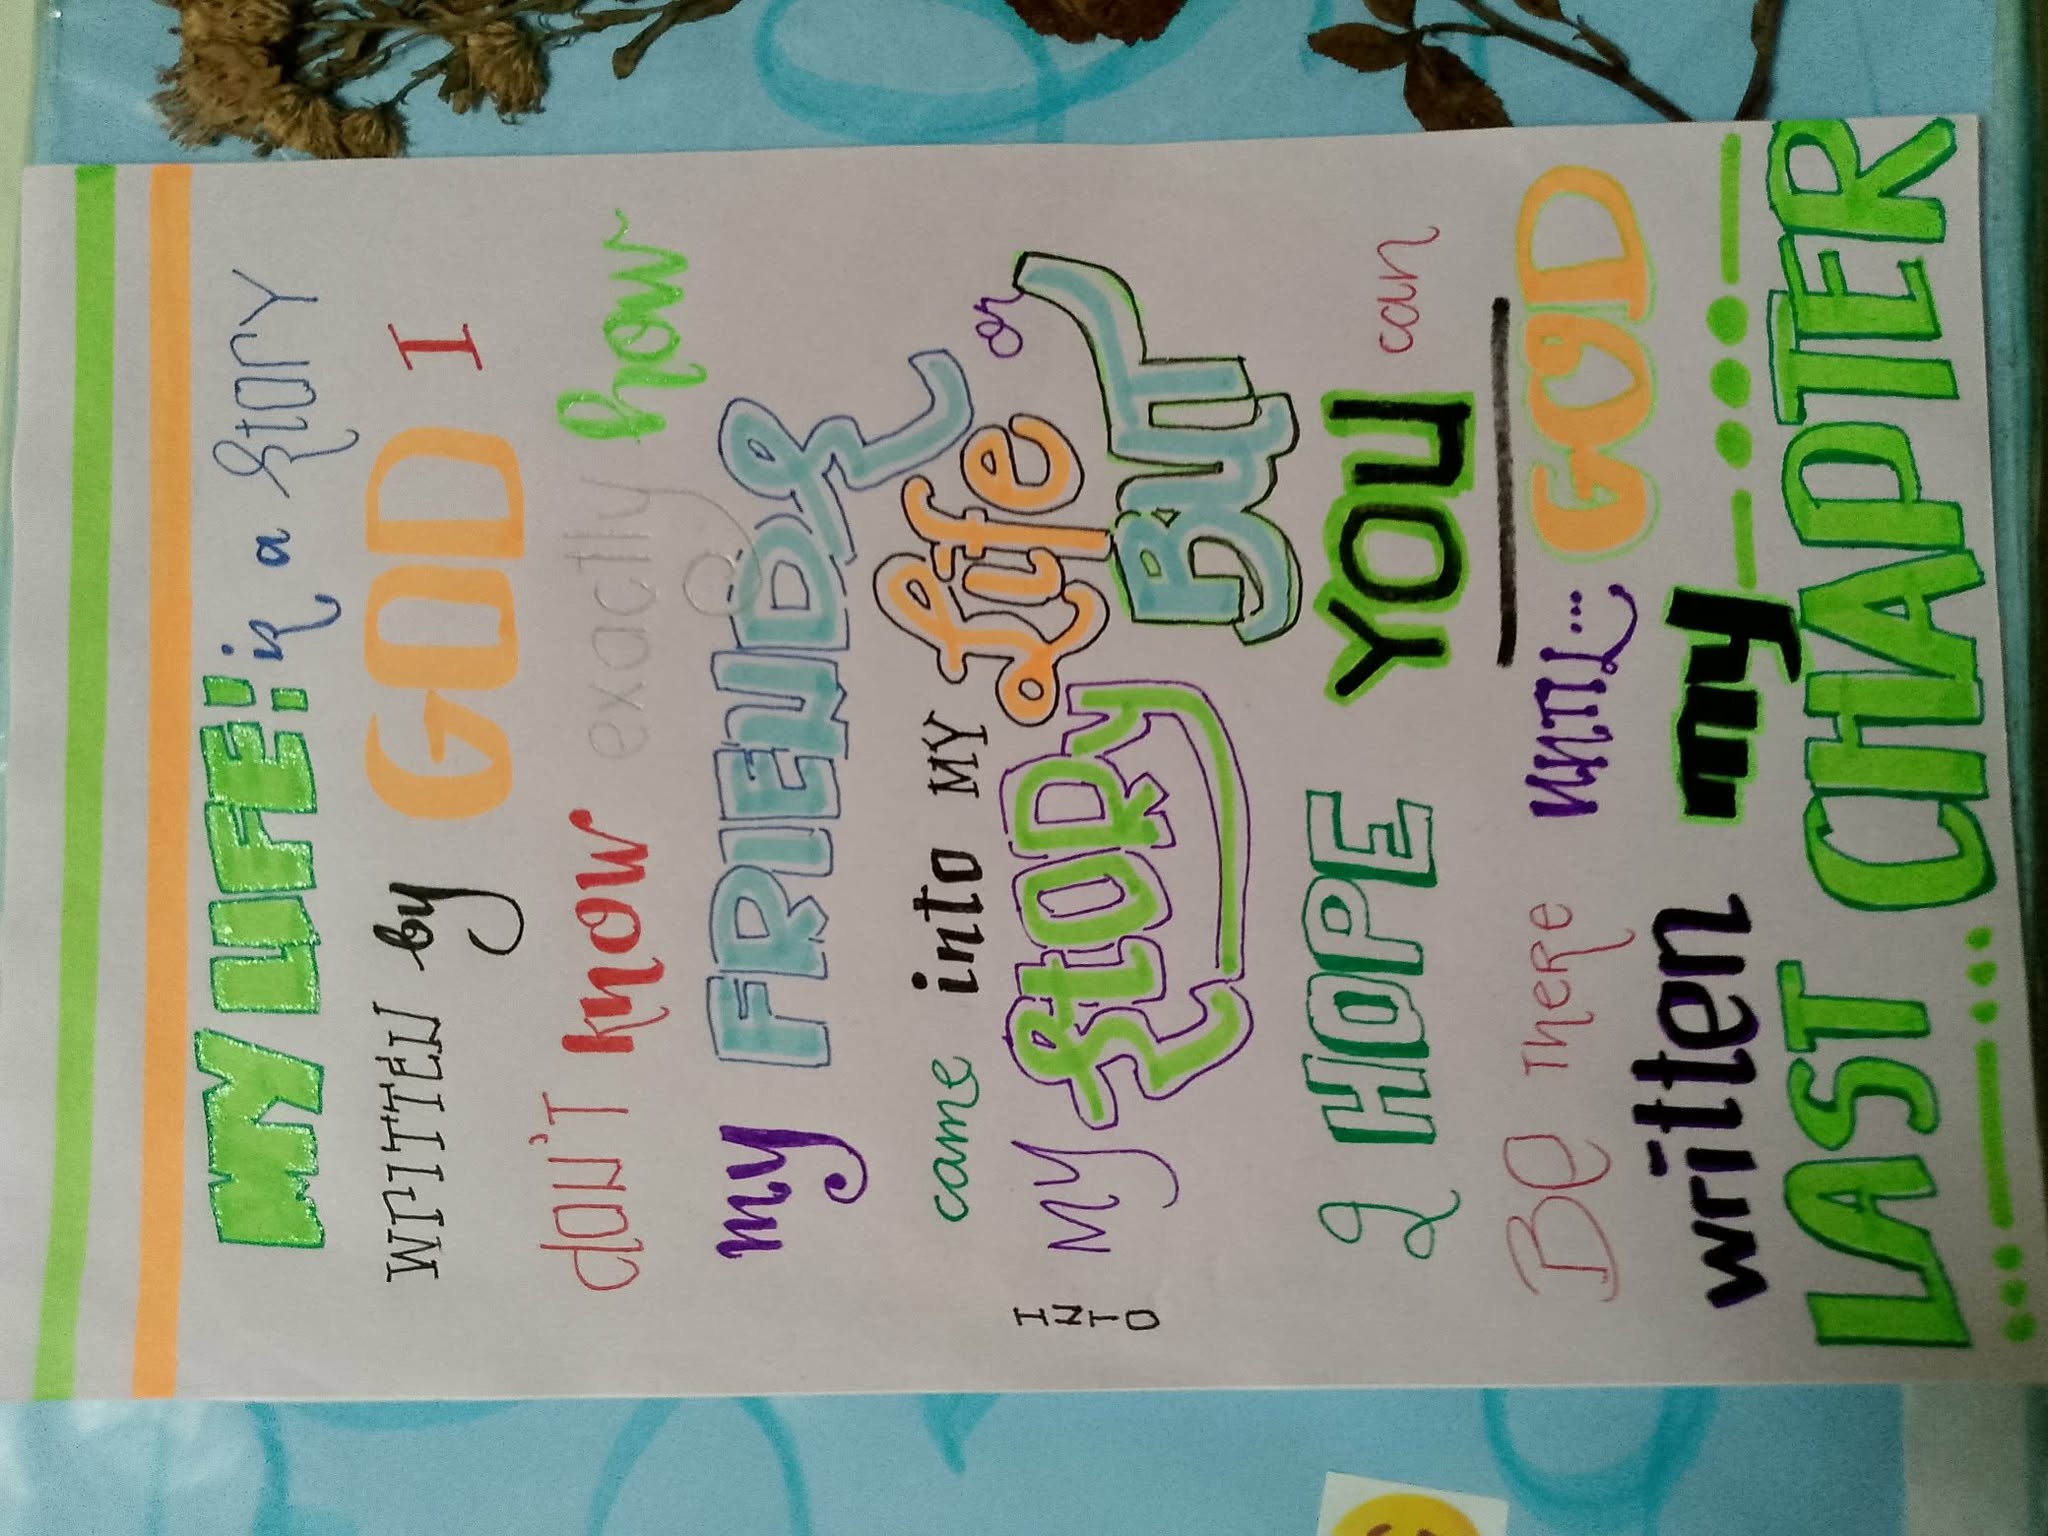 MY LIFE! is a story
WRITTEN by GOD I
don't know exactly how
my FRIENDS
came into MY Life or
INTO MY story BUT
I HOPE YOU can
Be There UNTIL... GOD
written my
LAST CHAPTER